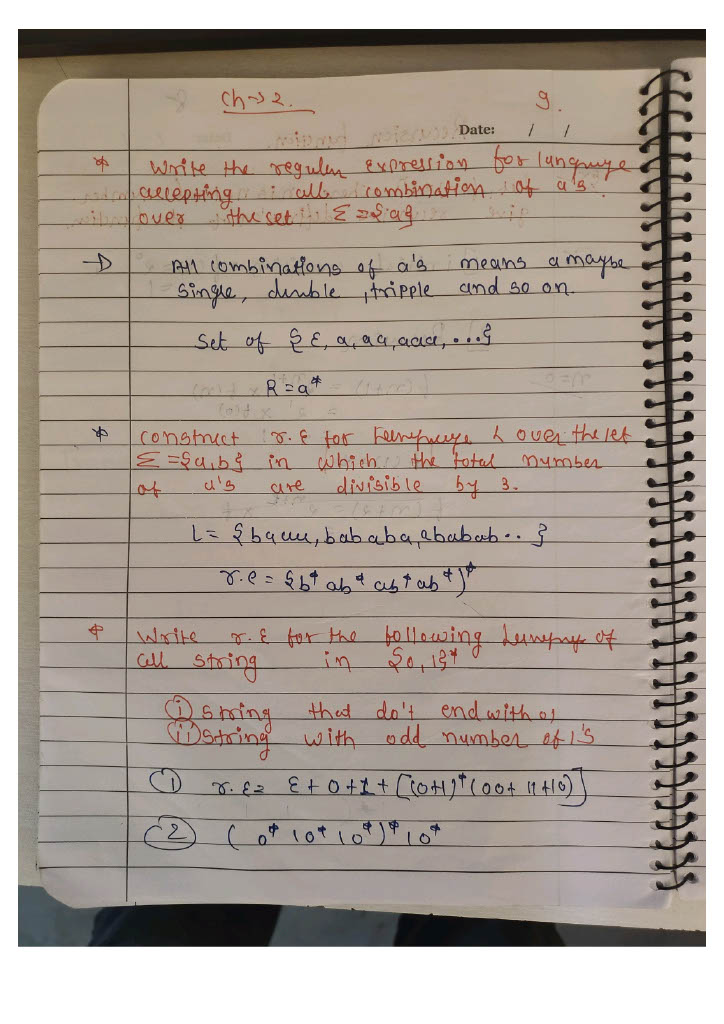 Ch → 2.
9.
Date: / /
* Write the regular expression for language
accepting all combination of a's
over the set Σ = {a}
→ All combinations of a's means a maybe
single, double, tripple and so on.
Set of {ε, a, aa, aaa, ...}
R = a*
* construct r.E for L over the set
Σ = {a,b} in which the total number
of a's are divisible by 3.
L = {baaa, bababa, ababab.. }
r.e = {b* ab* ab* ab*)*
* Write r.E for the following of
all string in {0,1}*
(i) string that do't end with 01
(ii) string with odd number of 1's
(1) r.E = ε + 0 + 1 + [(0+1)* (00 + 11 + 10)]
(2) (0* 10* 10*)* 10*